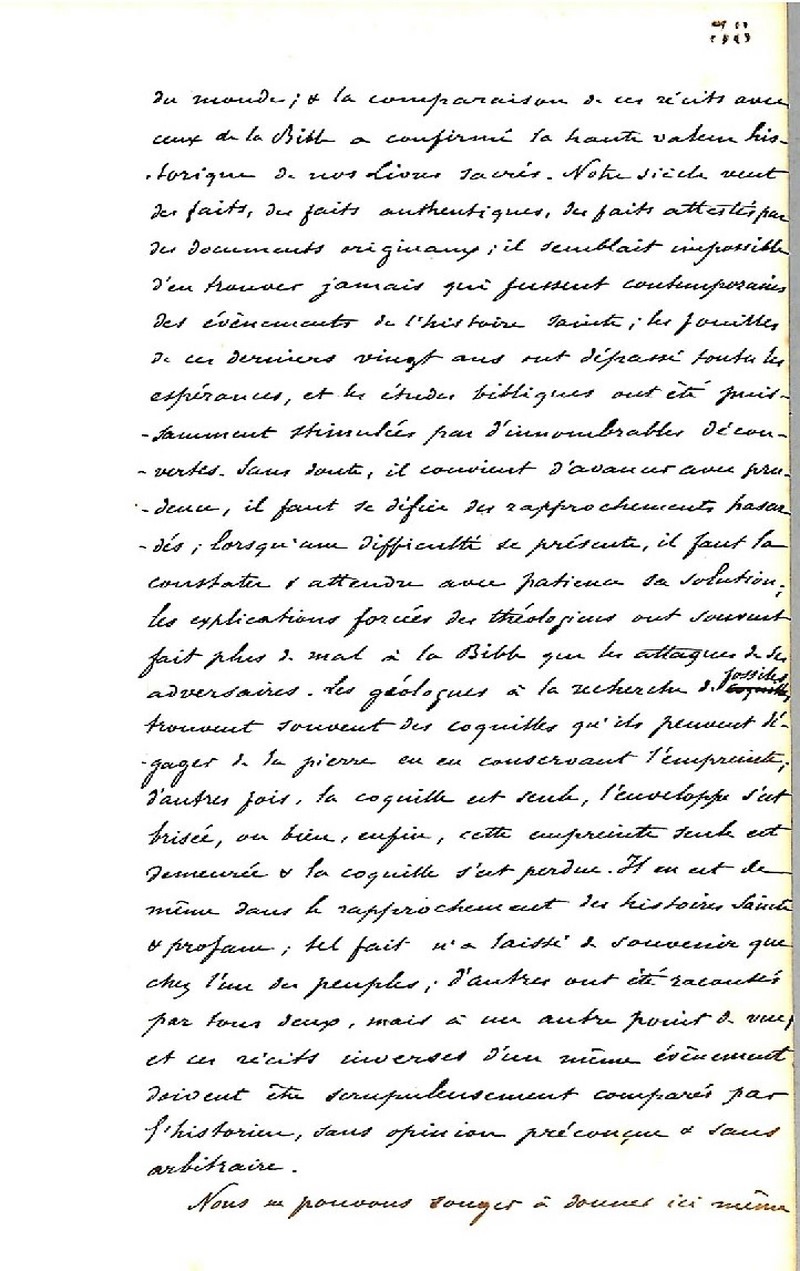 38
du monde ; & la comparaison de ces récits avec
ceux de la Bible a confirmé la haute valeur his-
-torique de nos Livres sacrés. Notre siècle veut
des faits, des faits authentiques, des faits attestés par
des documents originaux ; il semblait impossible
d'en trouver jamais qui fussent contemporains
des évènements de l'histoire sainte ; les fouilles
de ces derniers vingt ans ont dépassé toutes les
espérances, et les études bibliques ont été puis-
-samment stimulées par d'innombrables décou-
-vertes. Sans doute, il convient d'avancer avec pru-
-dence, il faut se défier des rapprochements hasar
-dés ; lorsqu'une difficulté se présente, il faut la
constater & attendre avec patience sa solution ;
les explications forcées des théologiens ont souvent
fait plus de mal à la Bible que les attaques de ses
adversaires. Les géologues à la recherche de fossiles
trouvent souvent des coquilles qu'ils peuvent dé-
-gager de la pierre en en conservant l'empreinte ;
d'autres fois, la coquille est seule, l'enveloppe s'est
brisée, ou bien, enfin, cette empreinte seule est
demeurée & la coquille s'est perdue. Il en est de
même dans le rapprochement des histoires Sainte
& profane ; tel fait n'a laissé de souvenir que
chez l'un des peuples ; d'autres ont été racontés
par tous deux, mais à un autre point de vue,
et ces récits inverses d'un même évènement
doivent être scrupuleusement comparés par
l'historien, sans opinion préconçue & sans
arbitraire.
Nous ne pouvons songer à donner ici même